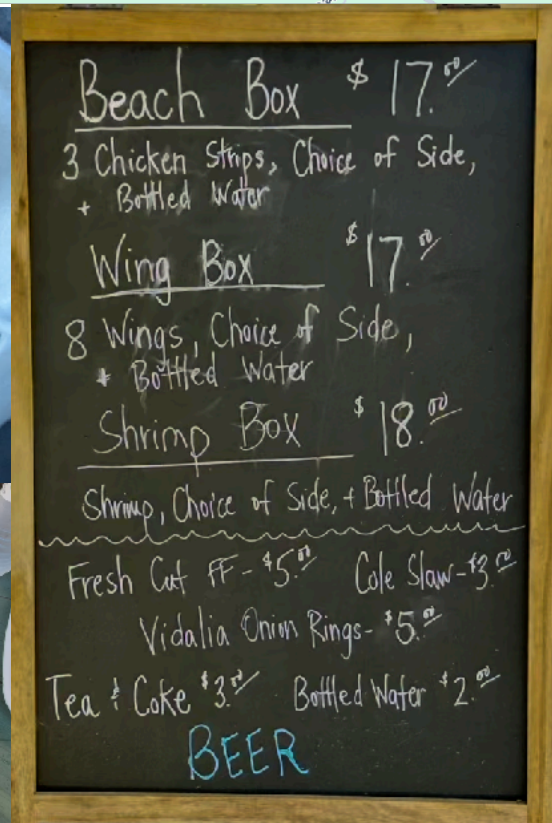 Beach Box $17.00
3 Chicken Strips, Choice of Side,
+ Bottled Water
Wing Box $17.00
8 Wings, Choice of Side,
+ Bottled Water
Shrimp Box $18.00
Shrimp, Choice of Side, + Bottled Water
Fresh Cut FF - $5.00 Cole Slaw - $3.00
Vidalia Onion Rings - $5.00
Tea & Coke $3.00 Bottled Water $2.00
BEER